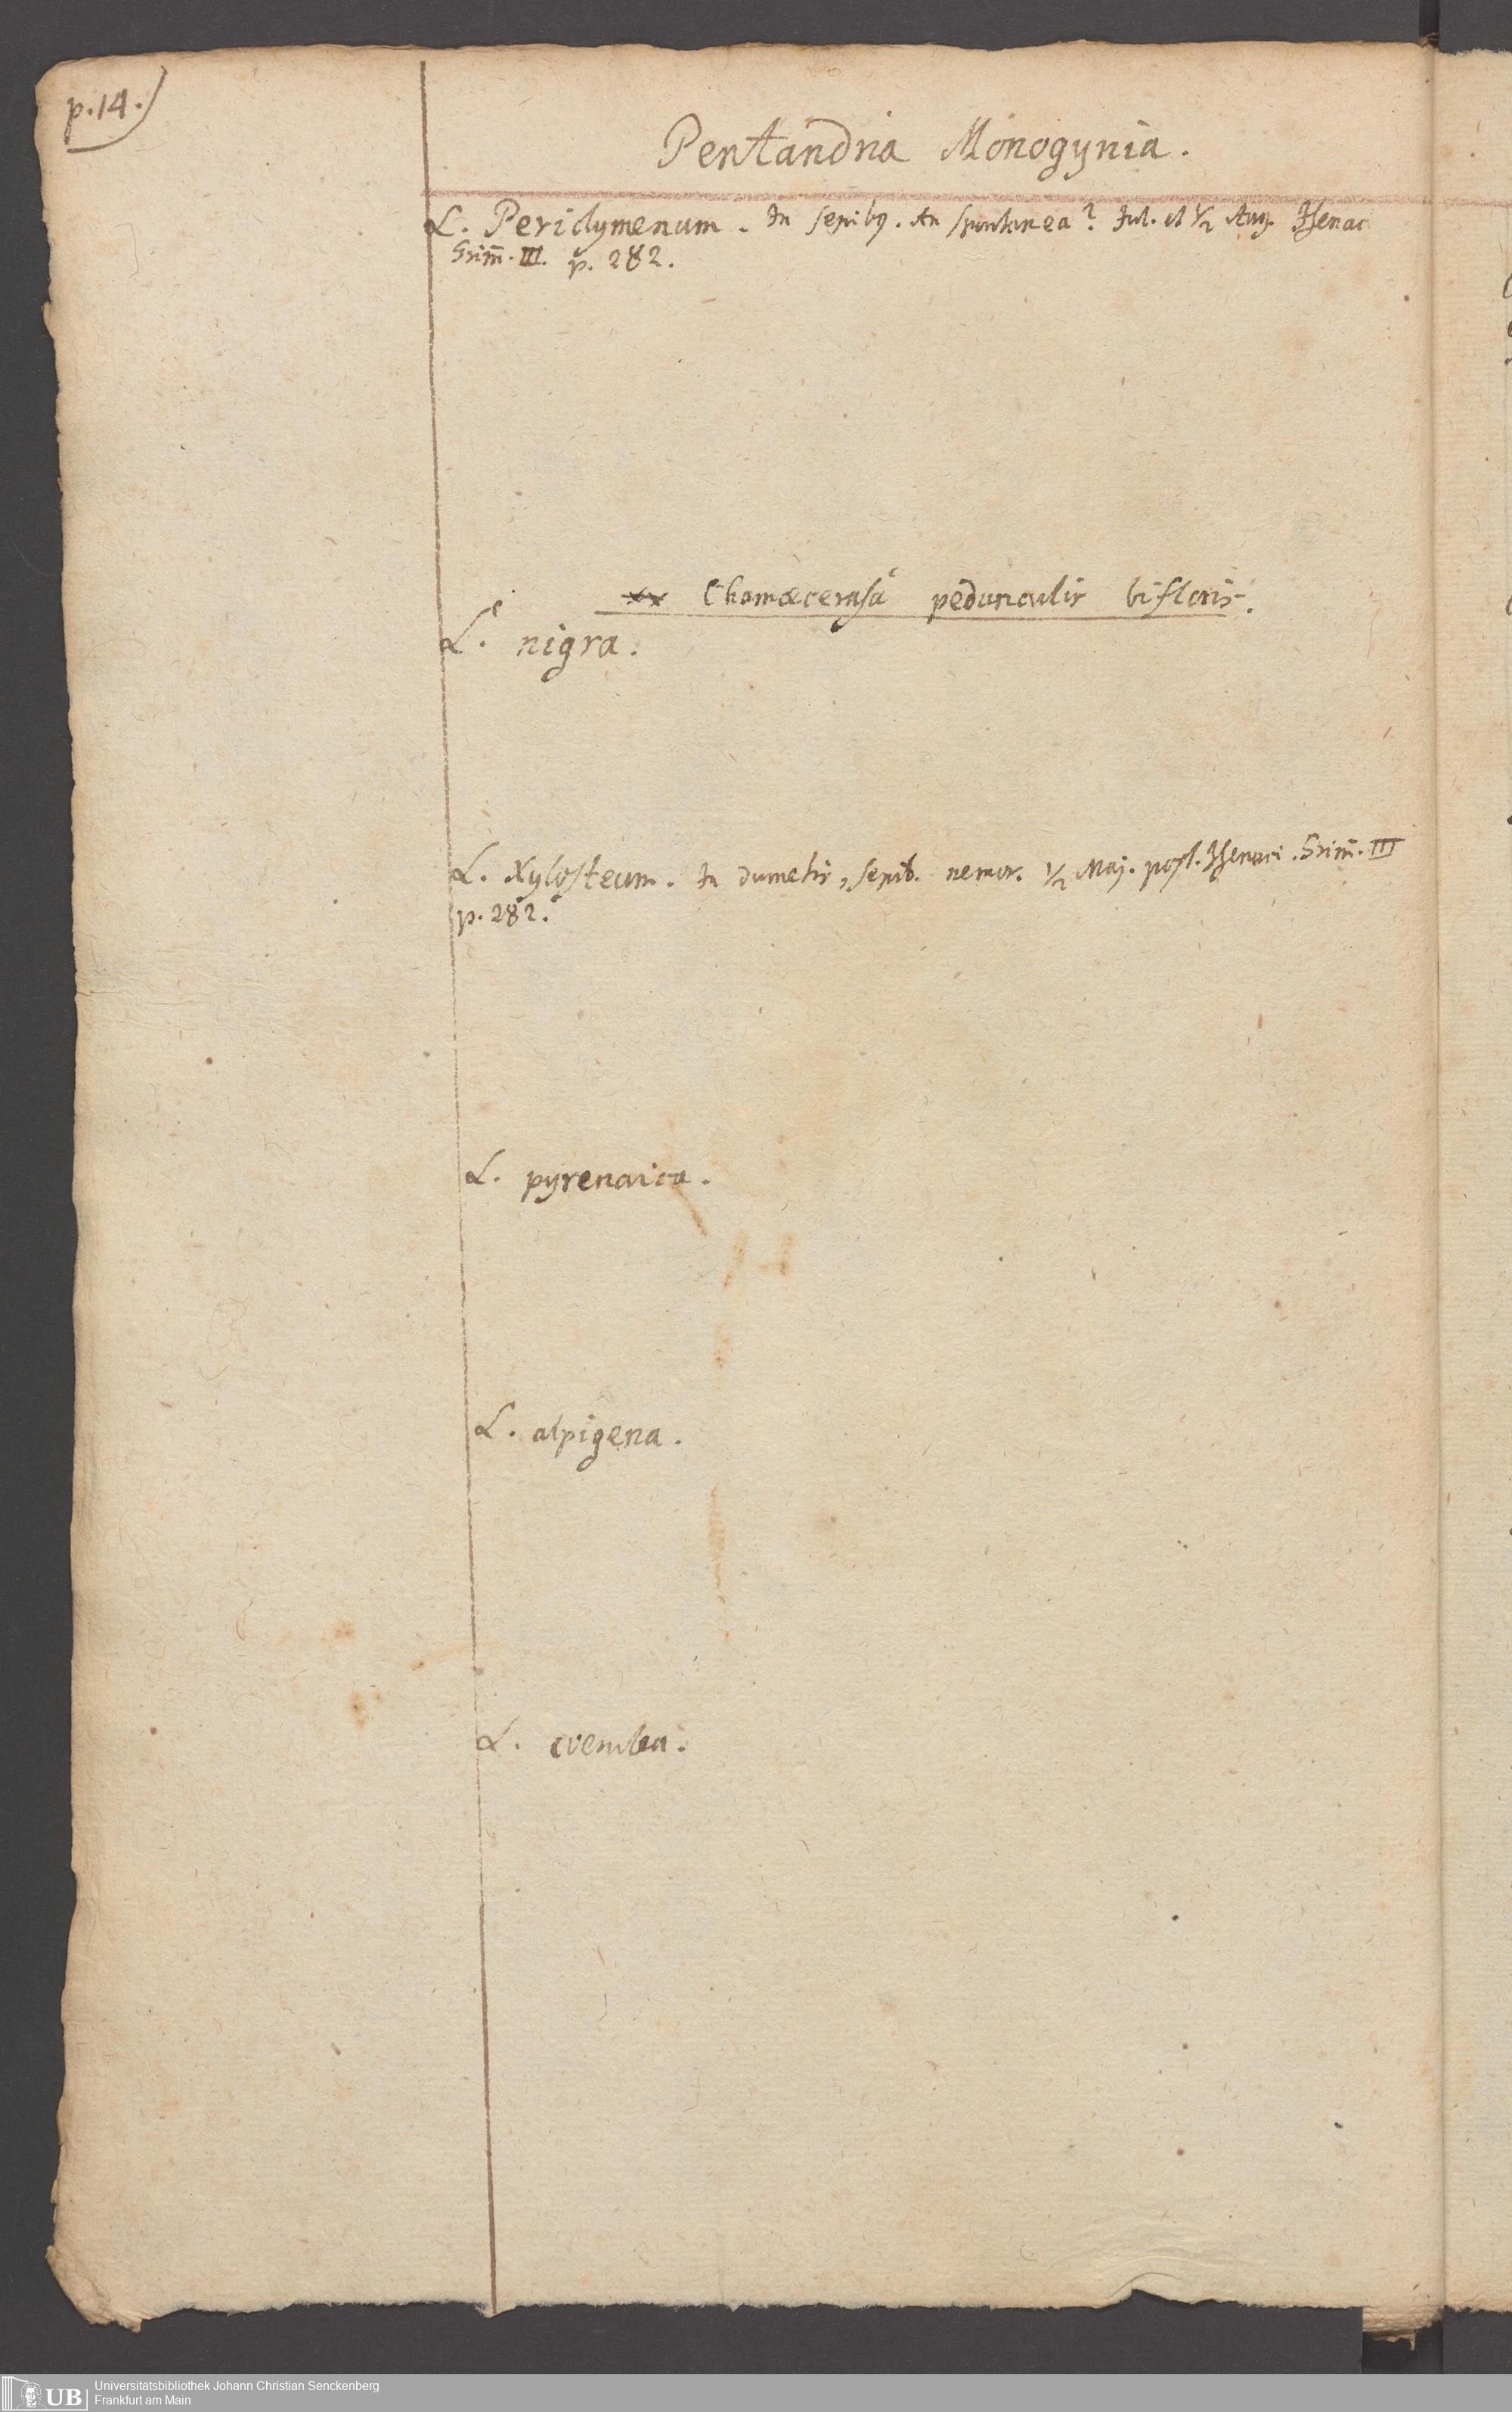 p.14.)
Pentandria Monogynia.
L. Periclymenum. In sepibq. An spontanea? Jul. et 1/2 Aug. Isenac
Grim̄. III. p. 282.
xx Chamæcerasa pedunculis bifloris.
L. nigra.
L. Xylosteum. In dumetis, sepib. nemor. 1/2 Maj. post. Isenaci. Grim̄. III
p. 282.
L. pyrenaica.
L. alpigena.
L. cœrulea.
UB Universitätsbibliothek Johann Christian Senckenberg
Frankfurt am Main